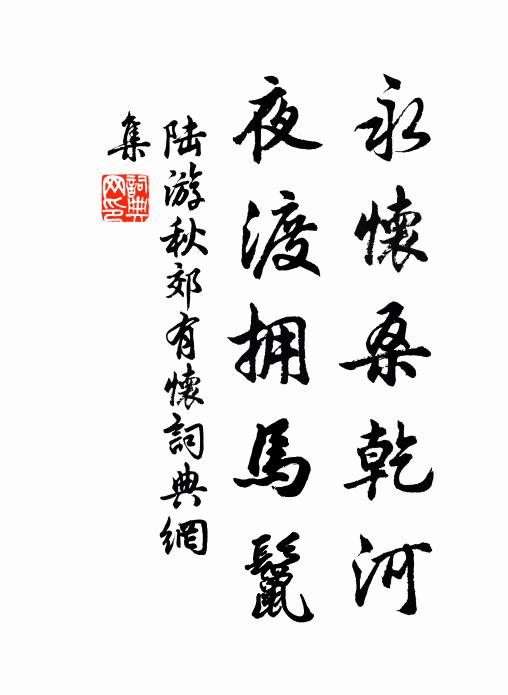 永懷桑乾河
夜渡拥馬鬣
陆游秋郊有懷詞典網
集
詞典
网印